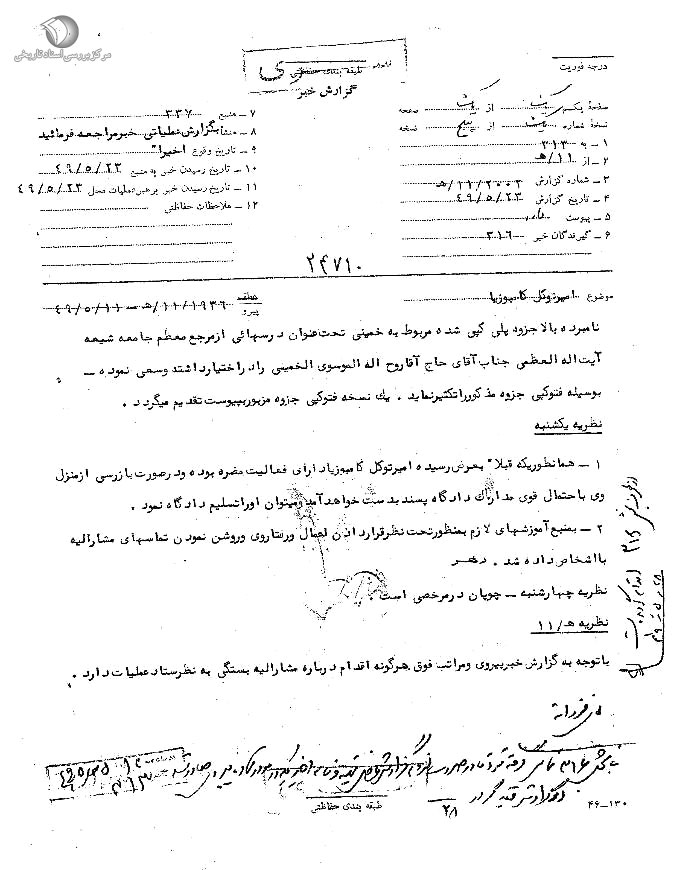 مرکز بررسی اسناد تاریخی
درجه فوریت
طبقه بندی حفاظتی سری
گزارش خبر
صفحهٔ یکم یک از یک صفحه
نسخهٔ شماره یک از پنج نسخه
۱ - به ۳۱۳
۲ - از ۱۱/هـ
۳ - شماره گزارش ۱۱/۲۰۰۳/هـ
۴ - تاریخ گزارش ۴۹/۵/۲۳
۵ - پیوست دارد
۶ - گیرندگان خبر ۳۱۶
۷ - منبع ۳۳۷
۸ - منشأ بگزارش عملیاتی خبر مراجعه فرمائید
۹ - تاریخ وقوع اخیرا"
۱۰ - تاریخ رسیدن خبر به منبع ۴۹/۵/۲۳
۱۱ - تاریخ رسیدن خبر برهبر عملیات محل ۴۹/۵/۲۳
۱۲ - ملاحظات حفاظتی
۲۴۷۱۰
موضوع امیرتوکل کامبوزیا
عطف
پیرو ۱۱/۱۹۳۶/هـ - ۴۹/۵/۱۱
نامبرده بالا جزوه پلی کپی شده مربوط به خمینی تحت عنوان درسهائی از مرجع معظم جامعه شیعه
آیت اله العظمی جناب آقای حاج آقا روح اله الموسوی الخمینی را در اختیار داشته و سعی نموده -
بوسیله فتوکپی جزوه مذکور را تکثیر نماید . یک نسخه فتوکپی جزوه مزبور بپیوست تقدیم میگردد .
نظریه یکشنبه
۱ - همانطوریکه قبلا" بعرض رسیده امیرتوکل کامبوزیا دارای فعالیت مضره بوده و در صورت بازرسی از منزل
وی با احتمال قوی مدارک دادگاه پسند بدست خواهد آمد و میتوان او را تسلیم دادگاه نمود .
۲ - بمنبع آموزشهای لازم بمنظور تحت نظر قرار دادن اعمال و رفتار وی و روشن نمودن تماسهای مشارالیه
با اشخاص داده شد .
نظریه چهارشنبه - چوپان در مرخصی است .
نظریه هـ/۱۱
با توجه به گزارش خبر پیروی و مراتب فوق هرگونه اقدام درباره مشارالیه بستگی به نظر ستاد عملیات دارد .
بخش ۳۱۶
۲۸
طبقه بندی حفاظتی
۴۶-۱۳۰